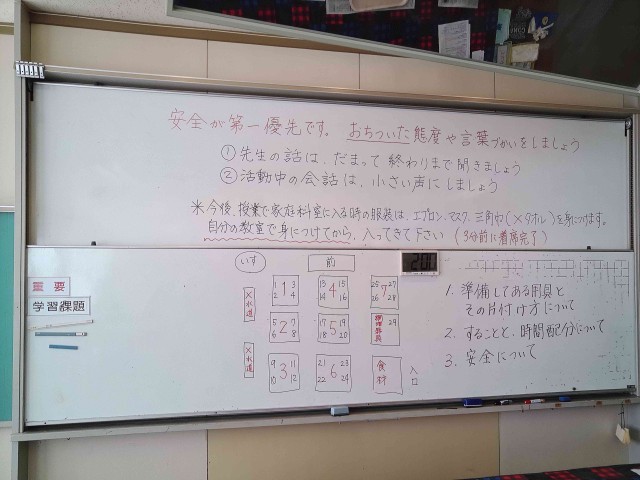 安全が第一優先です。 おちついた態度や言葉づかいをしましょう
①先生の話は、だまって終わりまで聞きましょう
②活動中の会話は、小さい声にしましょう
※今後、授業で家庭科室に入る時の服装は、エプロン、マスク、三角巾(×タオル)を身につけます。
自分の教室で身につけてから、入ってきて下さい (3分前に着席完了)
いす 前
重要
学習課題
×水道
1 2 1 3 4
13 14 4 15 16
25 26 7 27 28
5 6 2 7 8
17 18 5 19 20
29
×水道
9 10 3 11 12
21 22 6 23 24
食材
入口
1. 準備してある用具と
その片付け方について
2. することと、時間配分について
3. 安全について